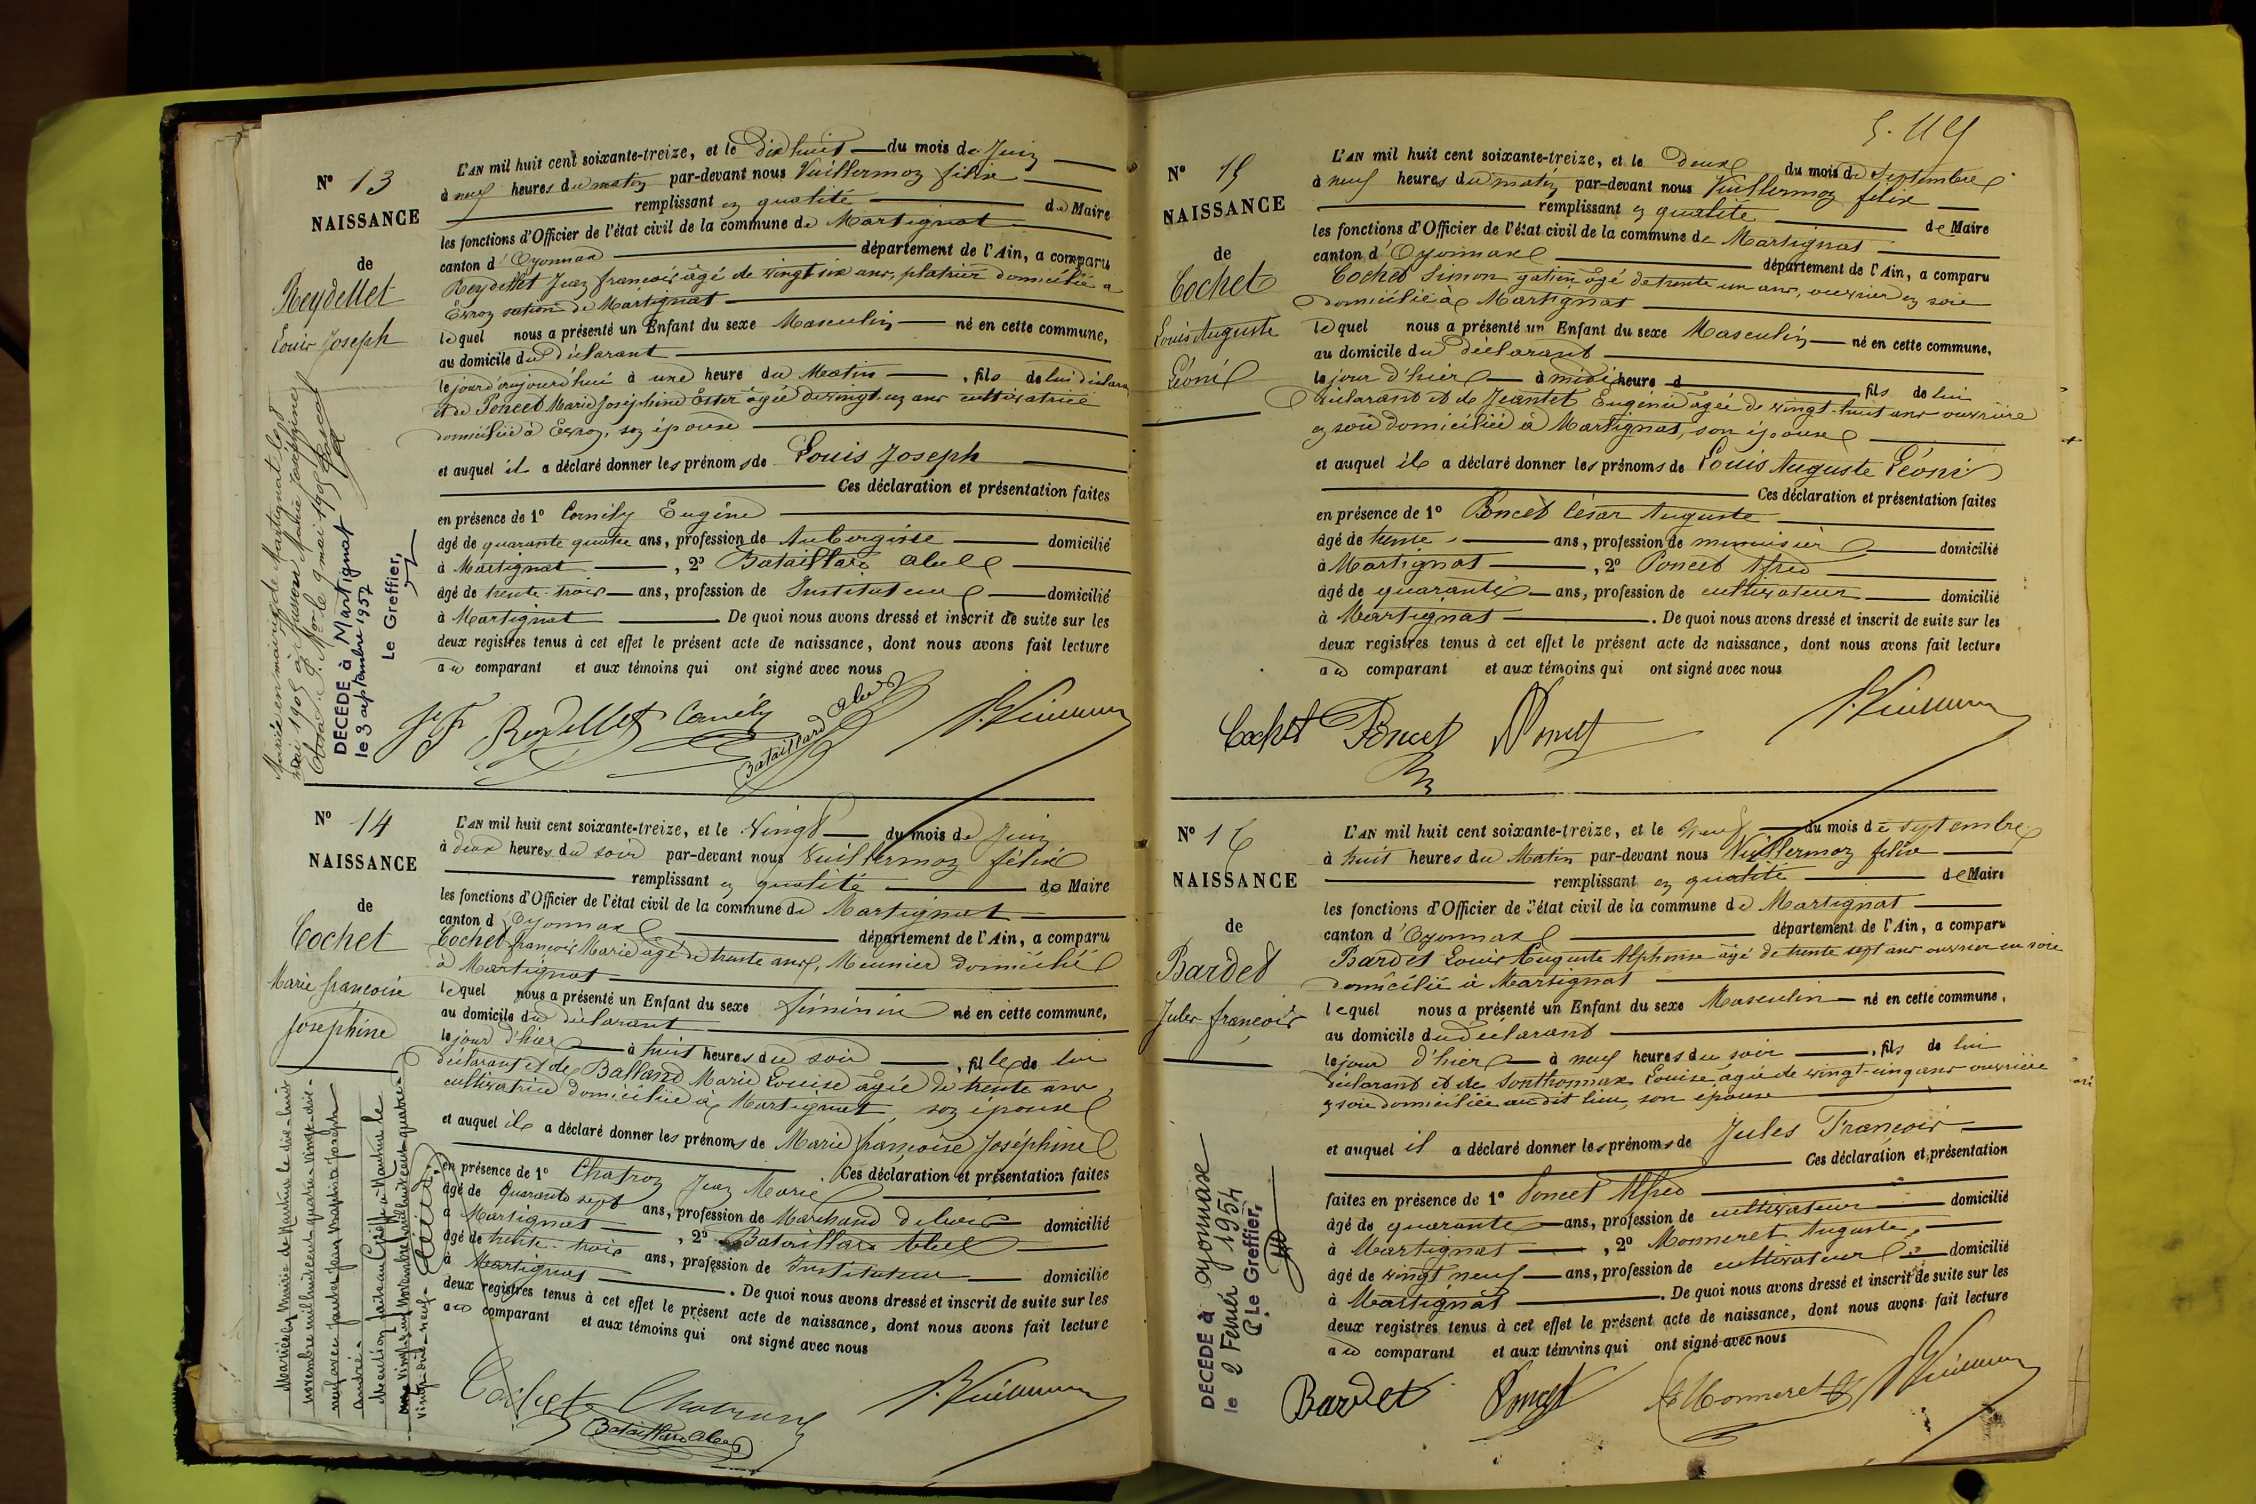 N° 13
NAISSANCE
de
Reydellet
Louis Joseph
L'AN mil huit cent soixante-treize, et le dix huit du mois de Juin
à neuf heures du matin par-devant nous Vuillermoz félix
remplissant en qualité de Maire
les fonctions d'Officier de l'état civil de la commune de Martignat
canton d'Oyonnax département de l'Ain, a comparu
Reydellet Jean françois âgé de vingt six ans, platrier domicilié a
Evron section de Martignat
lequel nous a présenté un Enfant du sexe Masculin né en cette commune,
au domicile du déclarant
le jour d'aujourd'hui à une heure du Matin, fils de lui déclara
et de Poncet Marie Joséphine Ester âgée de vingt un ans cultivatrice
domiciliée à Evron, son épouse
et auquel il a déclaré donner les prénoms de Louis Joseph
Ces déclaration et présentation faites
en présence de 1° Cornély Eugéne
âgé de quarante quatre ans, profession de Aubergiste domicilié
à Martignat, 2° Bataillard Abel
âgé de trente-trois ans, profession de Instituteur domicilié
à Martignat. De quoi nous avons dressé et inscrit de suite sur les
deux registres tenus à cet effet le présent acte de naissance, dont nous avons fait lecture
au comparant et aux témoins qui ont signé avec nous
J F Reydellet Cornély Bataillard Abel F. Vuillermoz
Mariée en mairie de Martignat le
mai 1905 à Marie Joséphine
le 9 mai 1905
DÉCÉDÉ à Martignat
le 3 septembre 1957
Le Greffier,
N° 14
NAISSANCE
de
Cochet
Marie françoise
Joséphine
L'AN mil huit cent soixante-treize, et le Vingt du mois de Juin
à deux heures du soir par-devant nous Vuillermoz félix
remplissant en qualité de Maire
les fonctions d'Officier de l'état civil de la commune de Martignat
canton d'Oyonnax département de l'Ain, a comparu
Cochet françois Marie âgé de trente ans, Meunier domicilié
à Martignat
lequel nous a présenté un Enfant du sexe féminin né en cette commune,
au domicile du déclarant
le jour d'hier à huit heures du soir, fille de lui
déclarant et de Balland Marie Louise âgée de trente ans
cultivatrice domiciliée à Martignat, son épouse
et auquel il a déclaré donner les prénoms de Marie françoise Joséphine
Ces déclaration et présentation faites
en présence de 1° Chatron Jean Marie
âgé de quarante sept ans, profession de Marchand de domicilié
à Martignat, 2° Bataillard Abel
âgé de trente-trois ans, profession de Instituteur domicilié
à Martignat. De quoi nous avons dressé et inscrit de suite sur les
deux registres tenus à cet effet le présent acte de naissance, dont nous avons fait lecture
au comparant et aux témoins qui ont signé avec nous
Cochet Bataillard Abel F. Vuillermoz
Mariée en Mairie de Nantua le dix-huit
novembre mil huit cent quatre-vingt-dix-
neuf avec Jean Joseph
andré.
Mention faite au Greffe à Nantua le
vingt un Novembre mil huit cent quatre-
vingt-dix-neuf.
5. 119
N° 15
NAISSANCE
de
Cochet
Louis Auguste
Léoni
L'AN mil huit cent soixante-treize, et le Deux du mois de Septembre
à neuf heures du matin par-devant nous Vuillermoz félix
remplissant en qualité de Maire
les fonctions d'Officier de l'état civil de la commune de Martignat
canton d'Oyonnax département de l'Ain, a comparu
Cochet Simon gatien âgé de trente un ans, ouvrier en soie
domicilié à Martignat
lequel nous a présenté un Enfant du sexe Masculin né en cette commune,
au domicile du déclarant
le jour d'hier à midi heure d fils de lui
déclarant et de Jeantet Eugénie âgée de vingt-huit ans ouvrière
en soie domiciliée à Martignat, son épouse
et auquel il a déclaré donner les prénoms de Louis Auguste Léoni
Ces déclaration et présentation faites
en présence de 1° Poncet César Auguste
âgé de trente ans, profession de menuisier domicilié
à Martignat, 2° Poncet Alfred
âgé de quarante ans, profession de cultivateur domicilié
à Martignat. De quoi nous avons dressé et inscrit de suite sur les
deux registres tenus à cet effet le présent acte de naissance, dont nous avons fait lecture
au comparant et aux témoins qui ont signé avec nous
Cochet Poncet A Poncet F. Vuillermoz
N° 16
NAISSANCE
de
Bardet
Jules françois
L'AN mil huit cent soixante-treize, et le neuf du mois de septembre
à huit heures du Matin par-devant nous Vuillermoz félix
remplissant en qualité de Maire
les fonctions d'Officier de l'état civil de la commune de Martignat
canton d'Oyonnax département de l'Ain, a comparu
Bardet Louis Auguste Alphonse âgé de trente sept ans ouvrier en soie
domicilié à Martignat
lequel nous a présenté un Enfant du sexe Masculin né en cette commune,
au domicile du déclarant
le jour d'hier à neuf heures du soir, fils de lui
déclarant et de Sonthonnax Louise âgée de vingt-cinq ans ouvrière
en soie domiciliée au dit lieu, son épouse
et auquel il a déclaré donner les prénoms de Jules François
Ces déclaration et présentation
faites en présence de 1° Poncet Alfred
âgé de quarante ans, profession de cultivateur domicilié
à Martignat, 2° Monneret Auguste,
âgé de vingt neuf ans, profession de cultivateur domicilié
à Martignat. De quoi nous avons dressé et inscrit de suite sur les
deux registres tenus à cet effet le présent acte de naissance, dont nous avons fait lecture
au comparant et aux témoins qui ont signé avec nous
Bardet Poncet A Monneret F. Vuillermoz
DÉCÉDÉ à Oyonnax
le 2 Février 1954
P. Le Greffier,